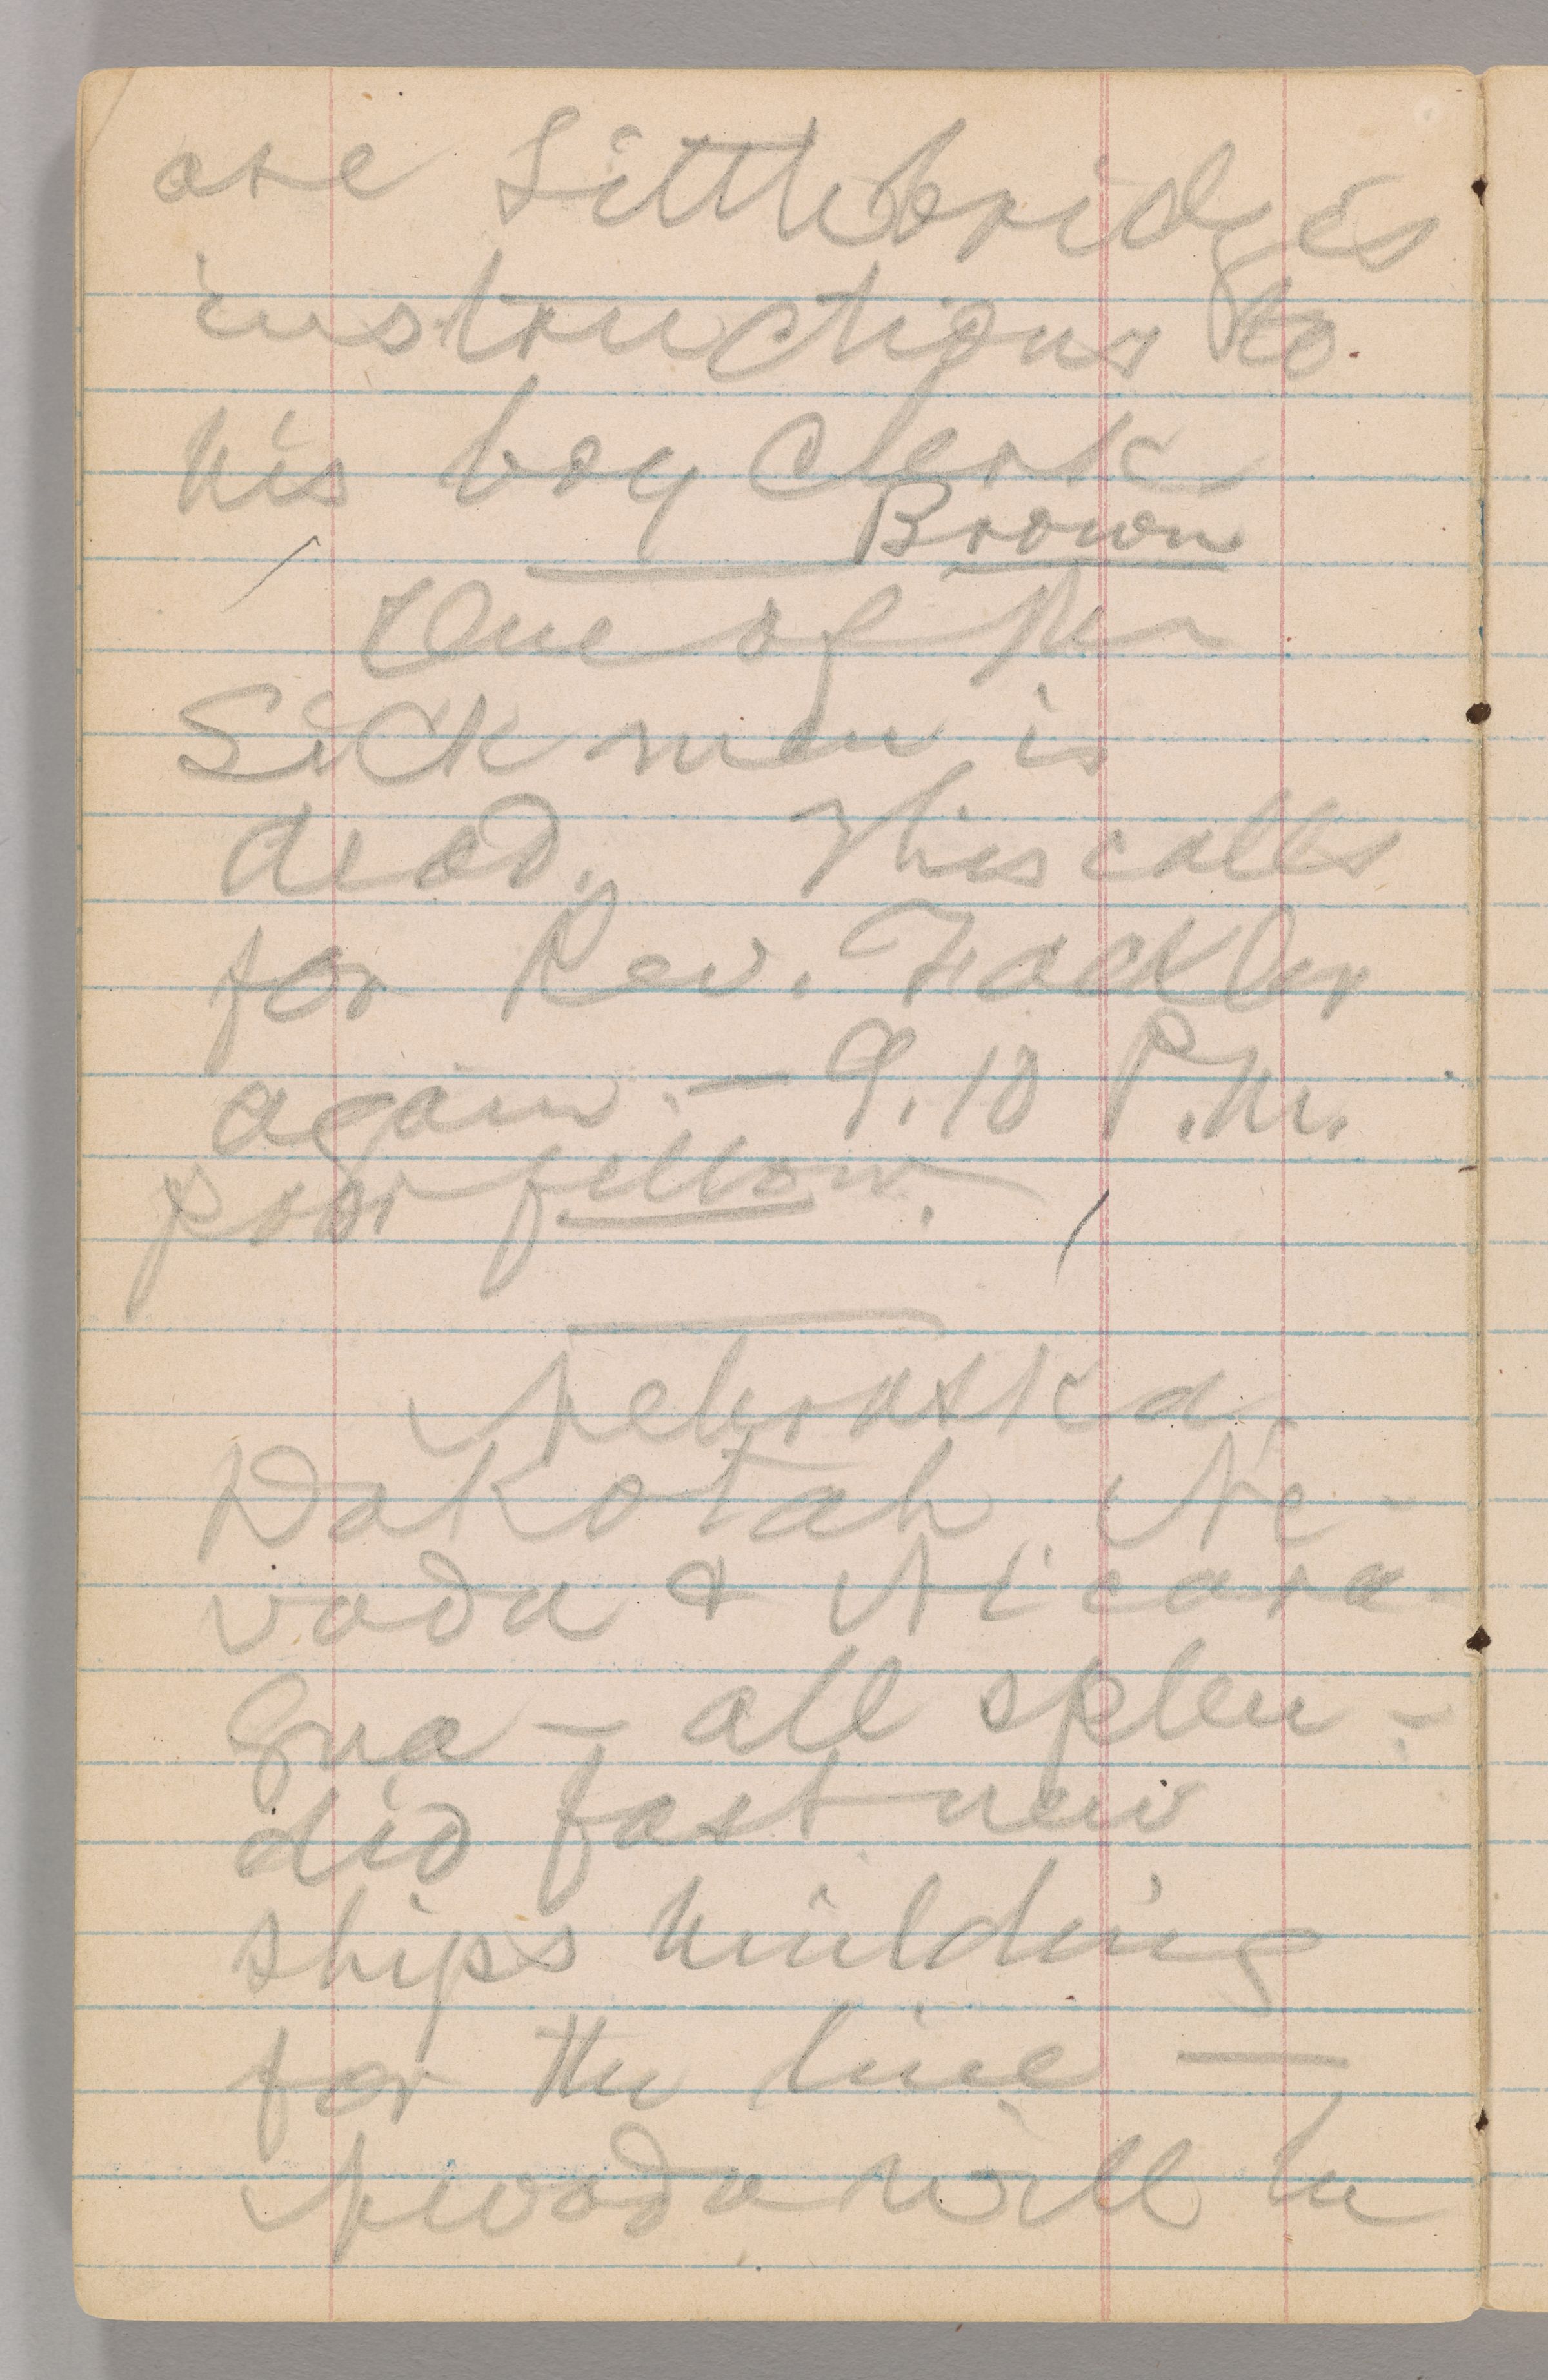 are Kittlebridges
instructions to
his boy clerk
Brown
One of the
Sick men is
dead. This calls
for Rev. Fackler
again. — 9.10 P.M.
poor fellow.
Nebraska,
Dakotah, Ne-
vada & Nicara-
gua — all splen-
did fast new
ships building
for the line —
Nevada will be